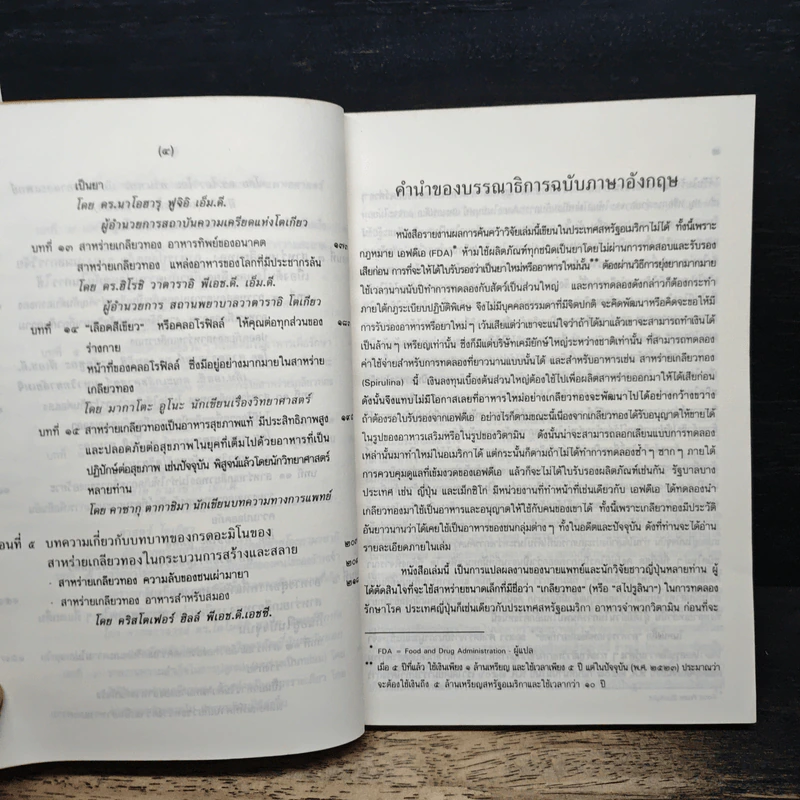 (๔)
เป็นยา
โดย ดร.นาโอฮารุ ฟูจิอิ เอ็ม.ดี.
ผู้อำนวยการสถาบันความเครียดแห่งโตเกียว
บทที่ ๑๓ สาหร่ายเกลียวทอง อาหารทิพย์ของอนาคต
สาหร่ายเกลียวทอง แหล่งอาหารของโลกที่มีประชากรล้น
โดย ดร.ฮิโรชิ วาตาราอิ พีเอช.ดี. เอ็ม.ดี.
ผู้อำนวยการ สถานพยาบาลวาตาราอิ โตเกียว
บทที่ ๑๔ "เลือดสีเขียว" หรือคลอโรฟิลล์ ให้คุณต่อทุกส่วนของ
ร่างกาย
หน้าที่ของคลอโรฟิลล์ ซึ่งมีอยู่อย่างมากมายในสาหร่าย
เกลียวทอง
โดย มากาโตะ อูโนะ นักเขียนเรื่องวิทยาศาสตร์
บทที่ ๑๕ สาหร่ายเกลียวทองเป็นอาหารสุขภาพแท้ มีประสิทธิภาพสูง
และปลอดภัยต่อสุขภาพในยุคที่เต็มไปด้วยอาหารที่เป็น
ปฏิปักษ์ต่อสุขภาพ เช่นปัจจุบัน พิสูจน์แล้วโดยนักวิทยาศาสตร์
หลายท่าน
โดย คาซากุ ตากาชิมา นักเขียนบทความทางการแพทย์
อนที่ ๕ บทความเกี่ยวกับบทบาทของกรดอะมิโนของ
สาหร่ายเกลียวทองในกระบวนการสร้างและสลาย
· สาหร่ายเกลียวทอง ความลับของชนเผ่ามายา
· สาหร่ายเกลียวทอง อาหารสำหรับสมอง
โดย คริสโตเฟอร์ ฮิลล์ พีเอช.ดี.เอชซี.
คำนำของบรรณาธิการฉบับภาษาอังกฤษ
หนังสือรายงานผลการค้นคว้าวิจัยเล่มนี้เขียนในประเทศสหรัฐอเมริกาไม่ได้ ทั้งนี้เพราะ
กฎหมาย เอฟดีเอ (FDA)* ห้ามใช้ผลิตภัณฑ์ทุกชนิดเป็นยาโดยไม่ผ่านการทดสอบและรับรอง
เสียก่อน การที่จะให้ได้ใบรับรองว่าเป็นยาใหม่หรืออาหารใหม่นั้น** ต้องผ่านวิธีการยุ่งยากมากมาย
ใช้เวลานานนับปีทำการทดลองกับสัตว์เป็นส่วนใหญ่ และการทดลองดังกล่าวก็ต้องกระทำ
ภายใต้กฎระเบียบปฏิบัติพิเศษ จึงไม่มีบุคคลธรรมดาที่มีจิตปกติ จะคิดพัฒนาหรือคิดจะขอให้มี
การรับรองอาหารหรือยาใหม่ๆ เว้นเสียแต่ว่าเขาจะแน่ใจว่าถ้าได้มาแล้วเขาจะสามารถทำเงินได้
เป็นล้านๆ เหรียญเท่านั้น ซึ่งก็มีแต่บริษัทเคมียักษ์ใหญ่ระหว่างชาติเท่านั้น ที่สามารถทดลอง
ค่าใช้จ่ายสำหรับการทดลองที่ยาวนานแบบนั้นได้ และสำหรับอาหารเช่น สาหร่ายเกลียวทอง
(Spirulina) นี้ เงินลงทุนเบื้องต้นส่วนใหญ่ต้องใช้ไปเพื่อผลิตสาหร่ายออกมาให้ได้เสียก่อน
ดังนั้นจึงแทบไม่มีโอกาสเลยที่อาหารใหม่อย่างเกลียวทองจะพัฒนาไปได้อย่างกว้างขวาง
ถ้าต้องรอใบรับรองจากเอฟดีเอ อย่างไรก็ตามขณะนี้เนื่องจากเกลียวทองได้รับอนุญาตให้ขายได้
ในรูปของอาหารเสริมหรือในรูปของวิตามิน ดังนั้นน่าจะสามารถลอกเลียนแบบการทดลอง
เหล่านั้นมาทำใหม่ในอเมริกาได้ แต่กระนั้นก็ตามถ้าไม่ได้ทำการทดลองซ้ำๆ ซากๆ ภายใต้
การควบคุมดูแลที่เข้มงวดของเอฟดีเอ แล้วก็จะไม่ได้ใบรับรองผลิตภัณฑ์เช่นกัน รัฐบาลบาง
ประเทศ เช่น ญี่ปุ่น และเม็กซิโก มีหน่วยงานที่ทำหน้าที่เช่นเดียวกับ เอฟดีเอ ได้ทดลองนำ
เกลียวทองมาใช้เป็นอาหารและอนุญาตให้ใช้กันได้ ทั้งนี้เพราะเกลียวทองมีประวัติ
อันยาวนานว่าได้เคยใช้เป็นอาหารของชนกลุ่มต่างๆ ทั้งในอดีตและปัจจุบัน ดังที่ท่านจะได้อ่าน
รายละเอียดภายในเล่ม
หนังสือเล่มนี้ เป็นการแปลผลงานของนายแพทย์และนักวิจัยชาวญี่ปุ่นหลายท่าน ผู้
ได้ตัดสินใจที่จะใช้สาหร่ายขนาดเล็กที่มีชื่อว่า "เกลียวทอง" (หรือ "สไปรูลินา") ในการทดลอง
รักษาโรค ประเทศญี่ปุ่นก็เช่นเดียวกับประเทศสหรัฐอเมริกา อาหารจำพวกวิตามิน ก่อนที่จะ
* FDA = Food and Drug Administration - ผู้แปล
** เมื่อ ๕ ปีที่แล้ว ใช้เงินเพียง ๑ ล้านเหรียญ และใช้เวลาเพียง ๕ ปี แต่ในปัจจุบัน (พ.ศ. ๒๕๒๓) ประมาณว่า
จะต้องใช้เงินถึง ๕ ล้านเหรียญสหรัฐอเมริกาและใช้เวลากว่า ๑๐ ปี